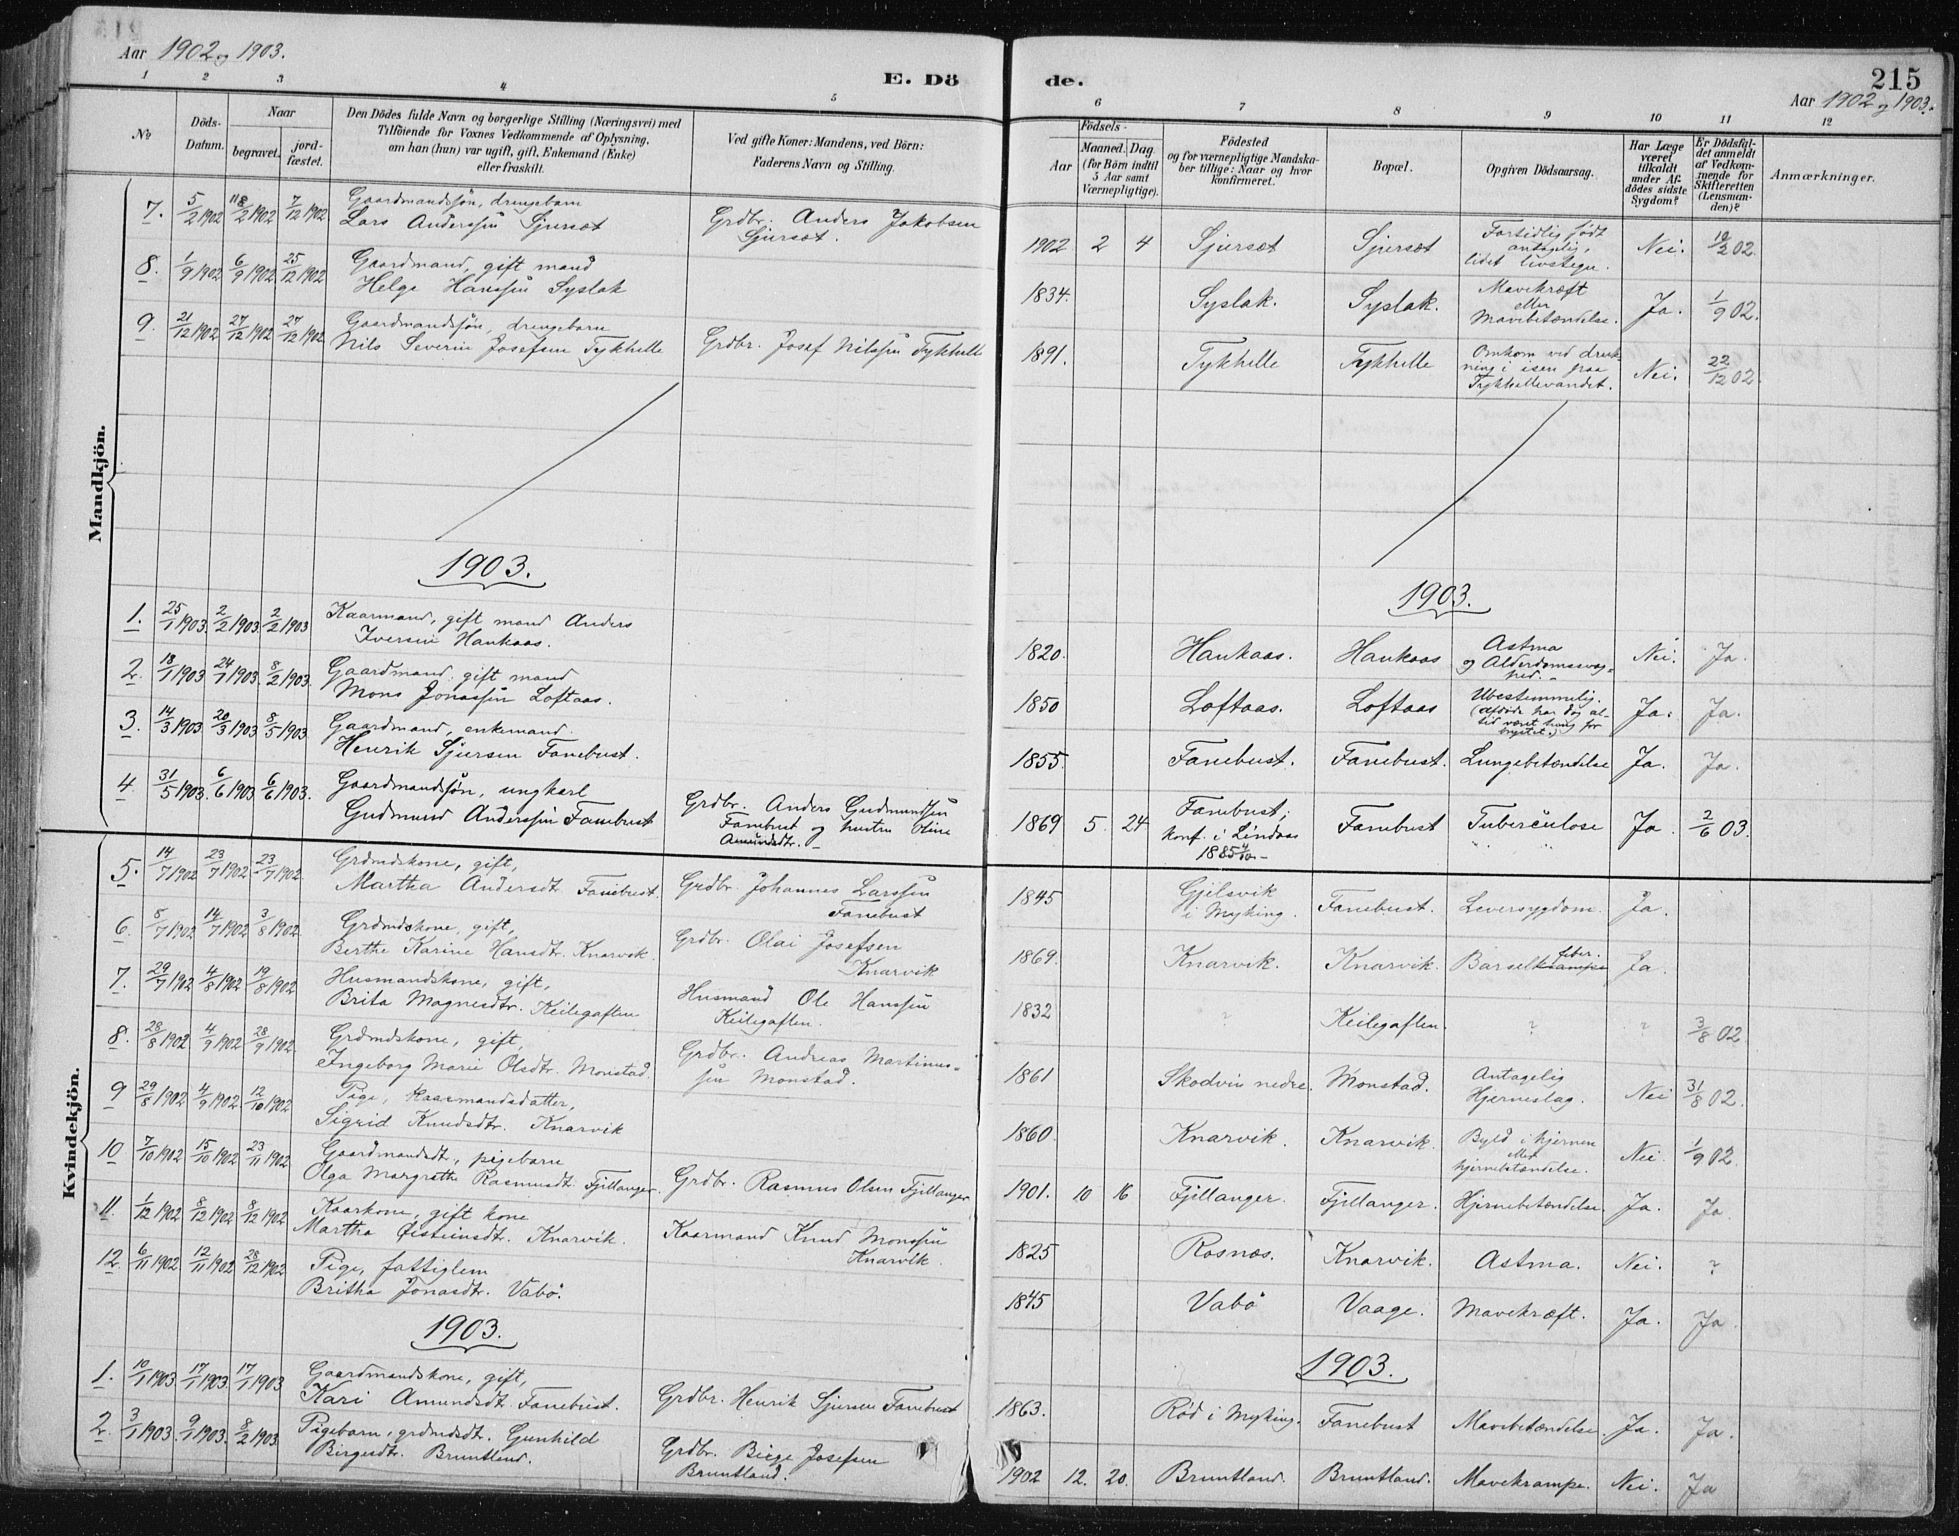 Aar 1902 og 1903.
E. Döde.
215
Aar 1902 og 1903.
1 2 3 4 5 6 7 8 9 10 11 12
No
Döds-Datum.
Naar
begravet.
jord-fæstet.
Den Dödes fulde Navn og borgerlige Stilling (Næringsvei) med
Tilföiende for Voxnes Vedkommende af Oplysning,
om han (hun) var ugift, gift, Enkemand (Enke)
eller fraskilt.
Ved gifte Koner: Mandens, ved Börn:
Faderens Navn og Stilling.
Födsels-
Aar
Maaned. Dag
(for Börn indtil
5 Aar samt
Værnepligtige).
Födested
og for værnepligtige Mandska-
ber tillige: Naar og hvor
konfirmeret.
Bopæl.
Opgiven Dödsaarsag.
Har Læge
været
tilkaldt
under Af-
dödes sidste
Sygdom?
Er Dödsfal-
det anmeldt
af Vedkom-
mende for
Skifteretten
(Lensman-
den)?
Anmærkninger.
Mandkjön.
7. 5/2 1902 8/2 1902 7/12 1902 Gaardmandssøn, drengebarn
Lars Anderssøn Sjursæt Grdbr. Anders Jakobsen
Sjursæt. 1902 2 4 Sjursæt Sjursæt Fortidlig født
antagelig,
lidet livstegn. Nei. 02.
8. 1/9 1902 6/9 1902 25/12 1902 Gaardmand, gift mand
Helge Hanssøn Syslak 1834. Syslak. Syslak. Mavekræft
eller
Mavebetændelse. Ja. 1/9 02.
9. 21/12 1902 27/12 1902 27/12 1902 Gaardmandssøn, drengebarn
Nils Severin Josefsen Tykhelle Grdbr. Josef Nilssøn Tykhelle 1891. Tykhelle Tykhelle Omkom ved druk-
ning i isen paa
Tykhellevandet. Nei. 22/12 02.
1903. 1903.
1. 25/1 1903. 2/2 1903. 2/2 1903 Kaarmand, gift mand Anders
Iversøn Haukaas. 1820. Haukaas. Haukaas Astma
og Alderdomssvag-
hed. Nei. Ja.
2. 18/1 1903 24/1 1903. 8/2 1903. Gaardmand. gift mand
Mons Jonassøn Loftaas. 1850 Loftaas. Loftaas Ubestemmelig.
(Afdøde har dog al-
tid været tung for
brystet.) Ja. Ja.
3. 14/3 1903. 20/3 1903 8/5 1903. Gaardmand, enkemand.
Henrik Sjursen Fanebust. 1855. Fanebust. Fanebust. Lungebetændelse Ja. Ja.
4. 31/5 1903. 6/6 1903 6/6 1903. Gaardmandssøn, ungkarl
Gudmund Anderssøn Fanebust Grdbr. Anders Gudmundsøn
Fanebust og hustru Oline
Amundsdtr. 1869 5. 24 Fanebust;
konf. i Lindaas
1885 4/10. Fanebust Tuberculose Ja 2/6 03.
Kvindekjön.
5. 14/7 1902 23/7 1902 23/7 1902 Grdmdskone, gift,
Martha Andersdt. Fanebust. Grdbr. Johannes Larssøn
Fanebust 1845 Gjilsvik
i Myking. Fanebust. Leversygdom. Ja.
6. 8/7 1902 14/7 1902 3/8 1902 Grdmdskone, gift,
Berthe Karine Hansdtr. Knarvik. Grdbr. Olai Josefsen
Knarvik 1869. Knarvik. Knarvik. Barselkrampe feber. Ja.
7. 29/7 1902 4/8 1902 19/8 1902 Husmandskone, gift,
Brita Magnesdtr. Keilegaflen Husmand Ole Hanssøn
Keilegaflen. 1832 ? Keilegaflen. ? ? 3/8 02
8. 28/8 1902 4/9 1902 28/9 1902. Grdmdskone, gift,
Ingeborg Marie Olsdtr. Monstad. Grdbr. Andreas Martinus-
søn Monstad. 1861 Skodvin nedre. Monstad. Antagelig
Hjerneslag. Nei 31/8 02.
9 29/8 1902 4/9 1902 12/10 1902 Pige, kaarmandsdatter,
Sigrid Knudsdtr. Knarvik 1860. Knarvik. Knarvik. Byld i hjernen
med
hjernebetændelse. Nei. 1/9 02.
10 7/10 1902 15/10 1902 23/11 1902 Gaardmandsdt, pigebarn
Olga Margrethe Rasmusdt. Fjillanger. Grdbr. Rasmus Olsen Fjillanger 1901. 10 16 Fjillanger. Fjillanger. Hjernebetændelse Ja. Ja
11. 1/12 1902 8/12 1902 8/12 1902 Kaarkone, gift kone
Martha Øisteinsdt. Knarvik. Kaarmand Knud Monssøn
Knarvik. 1825 Rosnæs. Knarvik. Astma. Nei. ?
12. 6/11 1902 12/11 1902 28/12 1902 Pige, fattiglem
Britha Jonasdtr. Vabø. 1845 Vabø Vaage. Mavekræft. Ja. Ja
1903. 1903.
1. 10/1 1903 17/1 1903. 17/1 1903 Gaardmandskone, gift,
Kari Amundsdt. Fanebust. Grdbr. Henrik Sjursen Fanebust 1863. Rød i Myking. Fanebust Mavebetændelse. Ja. Ja.
2. 3/1 1903. 9/1 1903. 8/2 1903. Pigebarn, grdmdsdt. Gunhild
Birgesdtr. Bruntland. Grdbr. Birge Josefsen
Bruntland. 1902 12. 20. Bruntland. Bruntland. Mavekrampe. Nei. Ja